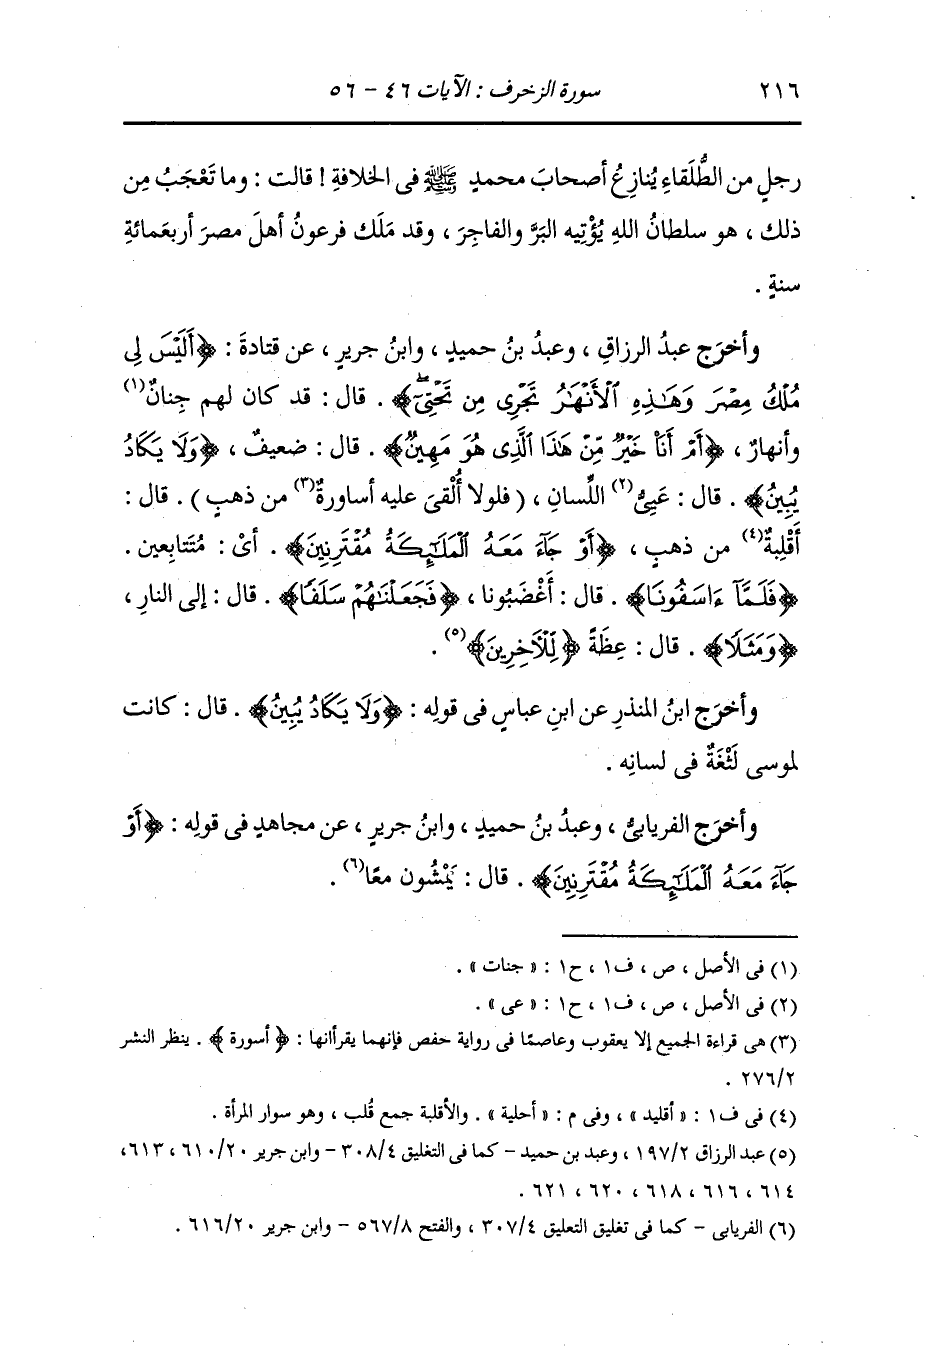 ٢١٦ سورة الزخرف : الآيات ٤٦ - ٥٦
رجلٍ من الطُّلَقاءِ يُنازِعُ أصحابَ محمدٍ ﷺ فى الخلافةِ ! قالت : وما تَعْجَبُ مِن
ذلك ، هو سلطانُ اللهِ يُؤْتِيه البَرَّ والفاجِرَ ، وقد مَلَك فرعونُ أهلَ مصرَ أربعَمائةِ
سنةٍ .
وأخرَج عبدُ الرزاقِ ، وعبدُ بنُ حميدٍ ، وابنُ جريرٍ ، عن قتادةَ : ﴿أَلَيْسَ لِى
مُلْكُ مِصْرَ وَهَـٰذِهِ ٱلْأَنْهَـٰرُ تَجْرِى مِن تَحْتِىٓۖ﴾ . قال : قد كان لهم جِنانٌ(١)
وأنهارٌ ، ﴿أَمْ أَنَا۠ خَيْرٌ مِّنْ هَـٰذَا ٱلَّذِى هُوَ مَهِينٌ﴾ . قال : ضعيفٌ ، ﴿وَلَا يَكَادُ
يُبِينُ﴾ . قال : عَيِىُّ(٢) اللِّسانِ ، ( فلولا أُلْقىَ عليه أساورةٌ(٣) من ذهبٍ ) . قال :
أَقْلِبةٌ(٤) من ذهبٍ ، ﴿أَوْ جَآءَ مَعَهُ ٱلْمَلَـٰٓئِكَةُ مُقْتَرِنِينَ﴾ . أىْ : مُتَتابِعين .
﴿فَلَمَّآ ءَاسَفُونَا﴾ . قال : أَغْضَبُونا ، ﴿فَجَعَلْنَـٰهُمْ سَلَفًا﴾ . قال : إلى النارِ ،
﴿وَمَثَلًا﴾ . قال : عِظَةً ﴿لِّلْـَٔاخِرِينَ﴾(٥) .
وأخرَج ابنُ المنذرِ عن ابنِ عباسٍ فى قولِه : ﴿وَلَا يَكَادُ يُبِينُ﴾ . قال : كانت
لموسى لَثْغَةٌ فى لسانِه .
وأخرَج الفريابىُّ ، وعبدُ بنُ حميدٍ ، وابنُ جريرٍ ، عن مجاهدٍ فى قولِه : ﴿أَوْ
جَآءَ مَعَهُ ٱلْمَلَـٰٓئِكَةُ مُقْتَرِنِينَ﴾ . قال : يَمْشُون معًا(٦) .
(١) فى الأصل ، ص ، ف١ ، ح١ : « جنات » .
(٢) فى الأصل ، ص ، ف١ ، ح١ : « عى » .
(٣) هى قراءة الجميع إلا يعقوب وعاصمًا فى رواية حفص فإنهما يقرأانها : ﴿ أسورة ﴾ . ينظر النشر
٢٧٦/٢ .
(٤) فى ف١ : « أقليد » ، وفى م : « أحلية » . والأقلبة جمع قُلب ، وهو سوار المرأة .
(٥) عبد الرزاق ١٩٧/٢ ، وعبد بن حميد - كما فى التغليق ٣٠٨/٤ - وابن جرير ٦١٠/٢٠ ، ٦١٣ ،
٦١٤ ، ٦١٦ ، ٦١٨ ، ٦٢٠ ، ٦٢١ .
(٦) الفريابى - كما فى تغليق التعليق ٣٠٧/٤ ، والفتح ٥٦٧/٨ - وابن جرير ٦١٦/٢٠ .